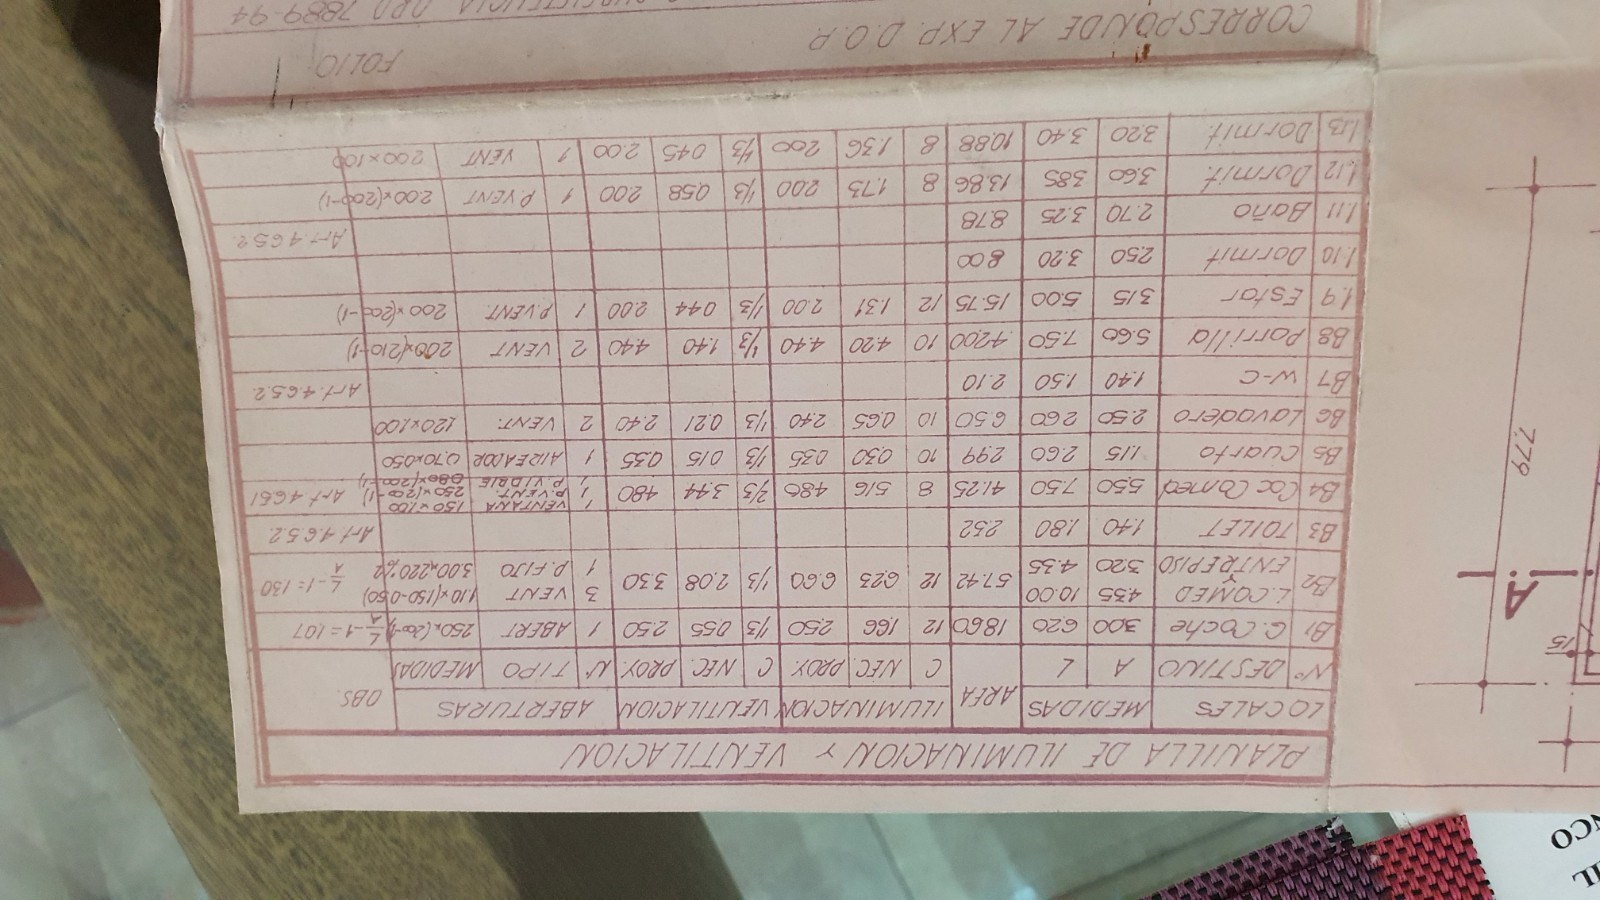 PLANILLA DE ILUMINACION Y VENTILACION
LOCALES MEDIDAS AREA ILUMINACION VENTILACION ABERTURAS OBS.
Nº DESTINO A L C NEC. PROY. C NEC. PROY. Nº TIPO MEDIDAS
B1 G. Coche 3.00 6.20 18.60 12 1.66 2.50 1/3 0.55 2.50 1 ABERT 2.50x(2.00-1) L/A-1=1.07
B2 L. COMED Y ENTREPISO 4.35 10.00 3.20 4.35 57.42 12 6.23 6.60 1/3 2.08 3.30 3 VENT 1.10x(1.50-0.50) 1 P. FIJO 3.00x2.20 L/A-1=1.30
B3 TOILET 1.40 1.80 2.52 Art 4.6.5.2.
B4 Coc Comed 5.50 7.50 41.25 8 5.16 4.80 2/3 3.44 4.80 1 VENTANA 150x100 1 P.VENT. 2.50x(2.00-1) 1 P.VIDRIE 0.80x(2.00-1) Art 4.6.5.1
B5 Cuarto 1.15 2.60 2.99 10 0.30 0.35 1/3 0.15 0.35 1 AIREADOR 0.70x0.50
B6 Lavadero 2.50 2.60 6.50 10 0.65 2.40 1/3 0.21 2.40 2 VENT. 120x100
B7 W-C 1.40 1.50 2.10 Art. 4.6.5.2
B8 Parrilla 5.60 7.50 42.00 10 4.20 4.40 1/3 1.40 4.40 2 VENT 2.00x(2.10-1)
1.9 Estar 3.15 5.00 15.75 12 1.31 2.00 1/3 0.44 2.00 1 P.VENT. 2.00x(2.00-1)
1.10 Dormit 2.50 3.20 8.00
1.11 Baño 2.70 3.25 8.78 Art 4.6.5.2.
1.12 Dormit. 3.60 3.85 13.86 8 1.73 2.00 1/3 0.58 2.00 1 P.VENT 2.00x(2.00-1)
1.13 Dormit. 3.20 3.40 10.88 8 1.36 2.00 1/3 0.45 2.00 1 VENT 2.00x1.00
FOLIO
CORRESPONDE AL EXP. D.O.P.
ORD 7889-94
A
15
7.79